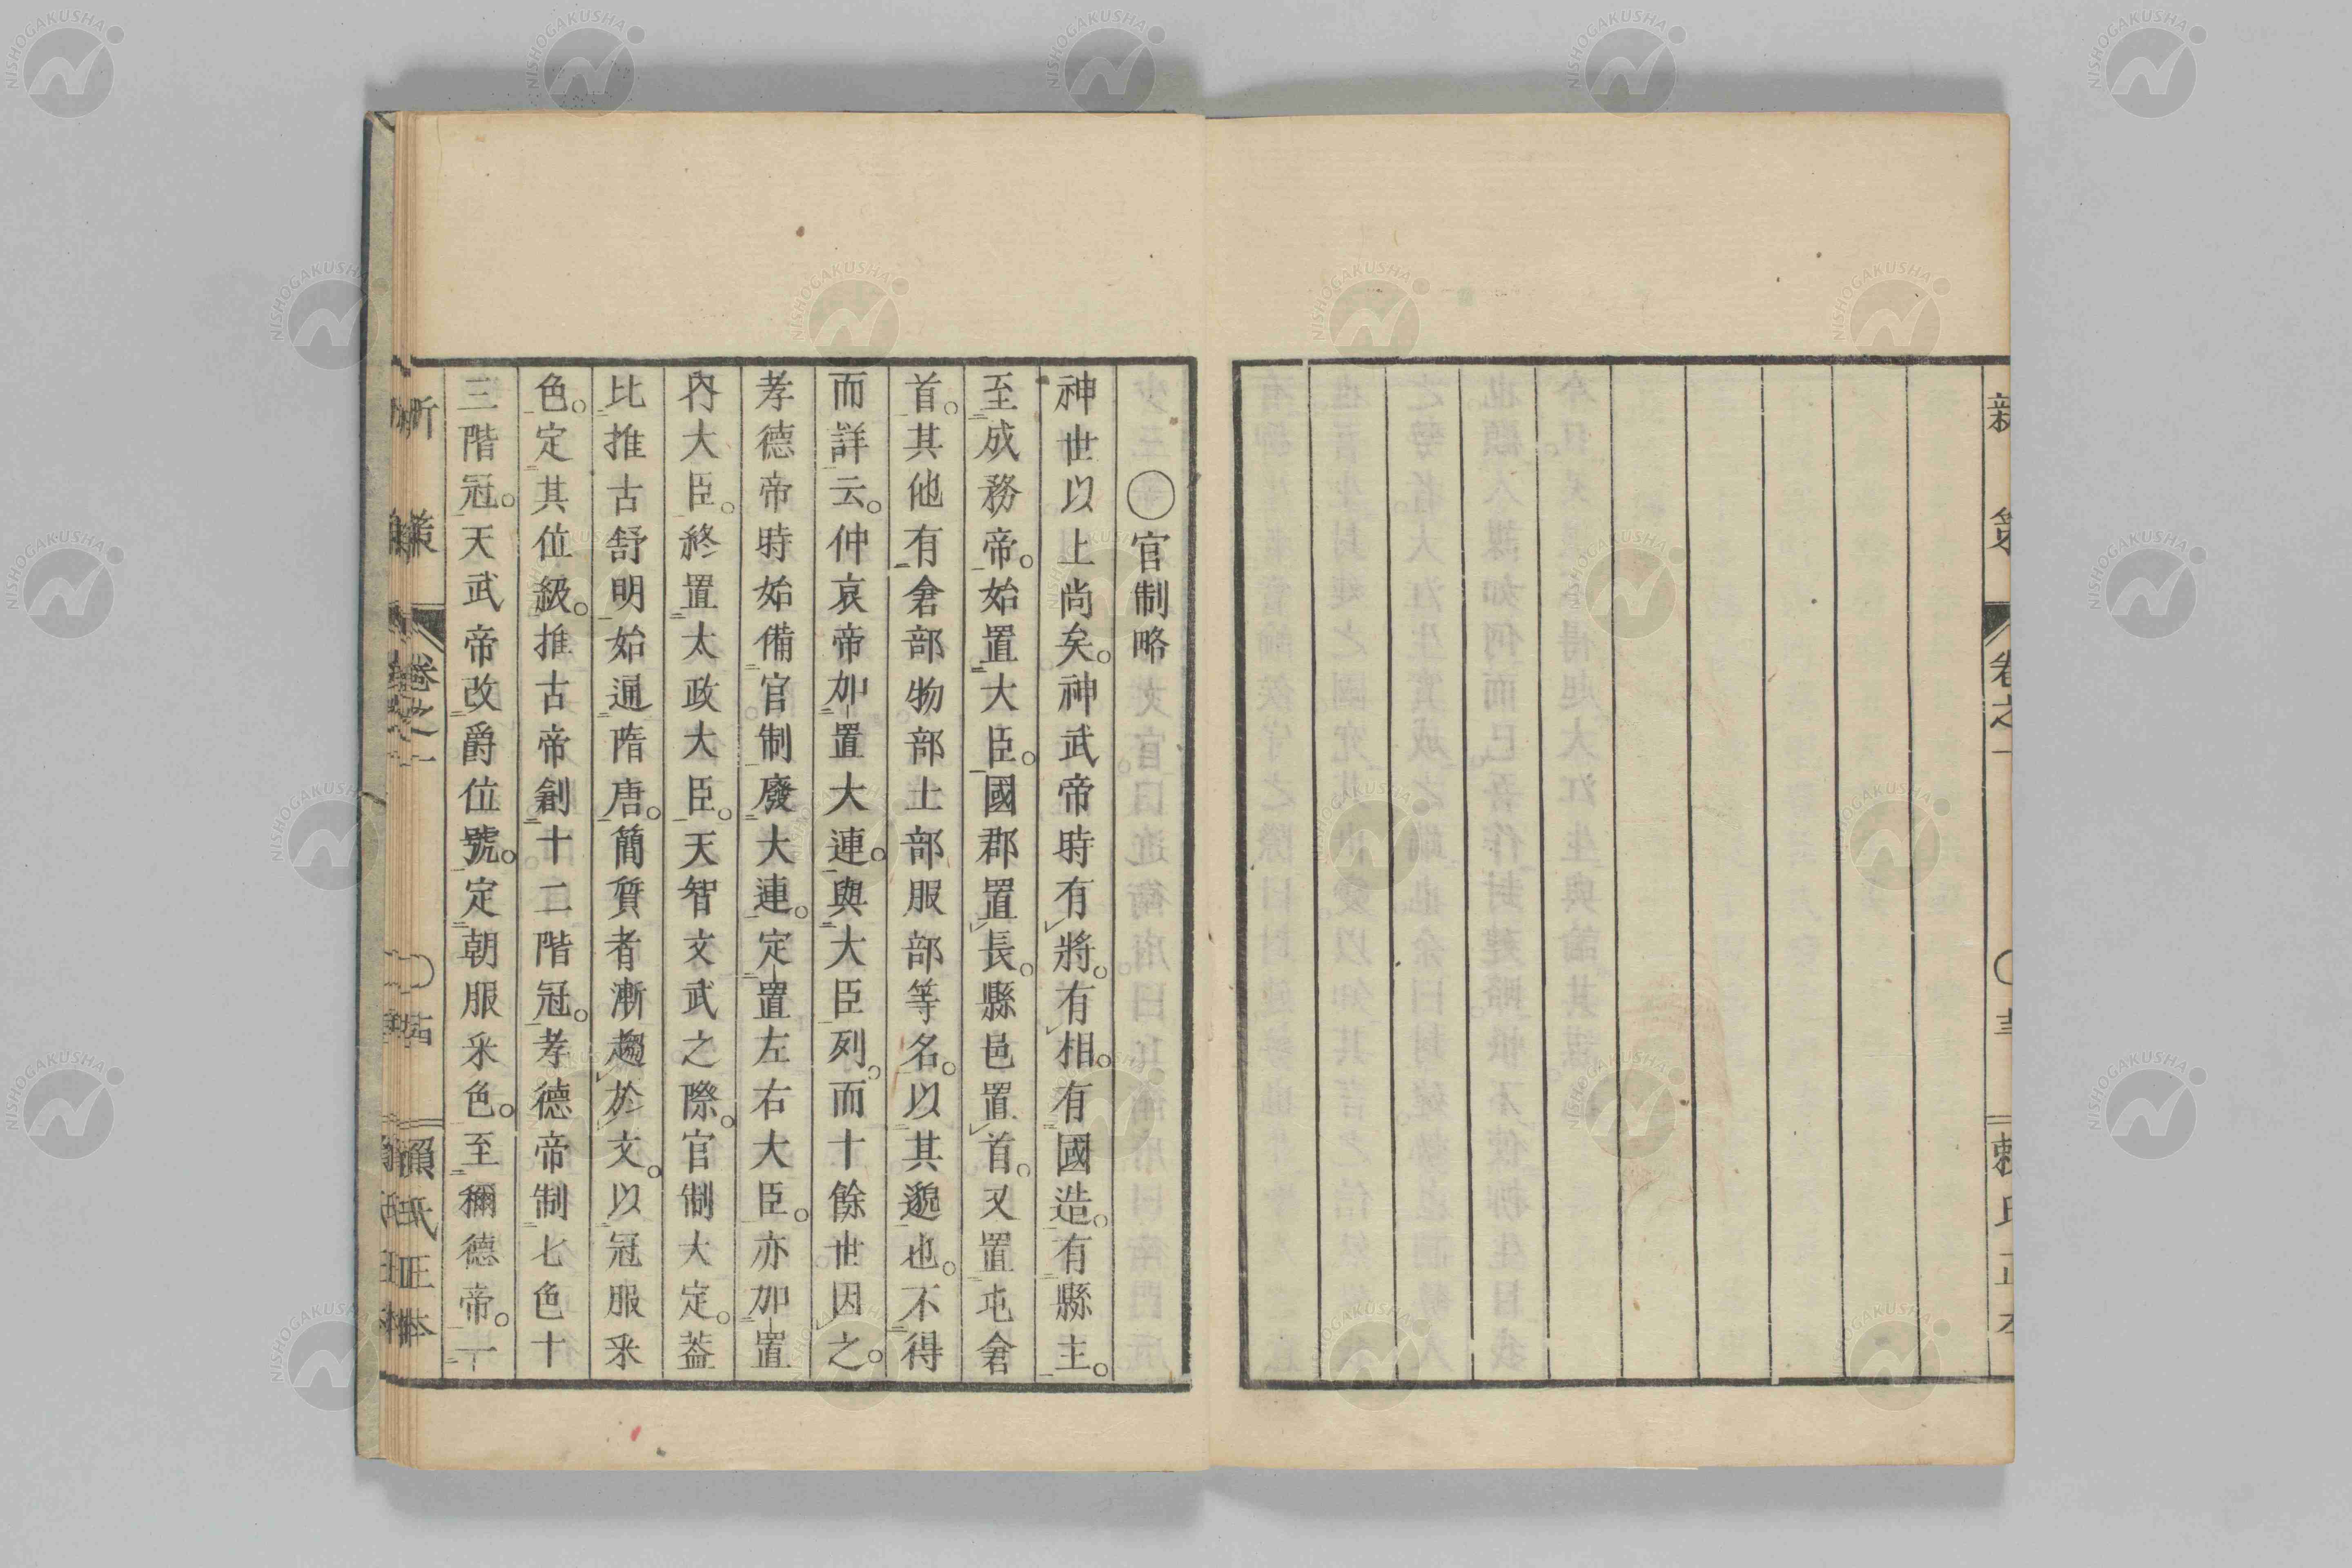 〇官制略
神世以上尚矣。神武帝時有將。有相。有國造。有縣主。
至成務帝。始置大臣。國郡置長。縣邑置首。又置屯倉
首。其他有倉部物部土部服部等名。以其邈也。不得
而詳云。仲哀帝加置大連。與大臣列。而十餘世因之。
孝德帝時始備官制廢大連。定置左右大臣。亦加置
內大臣。終置太政大臣。天智文武之際。官制大定。蓋
比推古舒明始通隋唐。簡質者漸趨於文。以冠服采
色。定其位級。推古帝創十二階冠。孝德帝制七色十
三階冠。天武帝改爵位號。定朝服采色。至稱德帝。一
新策
卷之一
賴氏正本
NISHOGAKUSHA